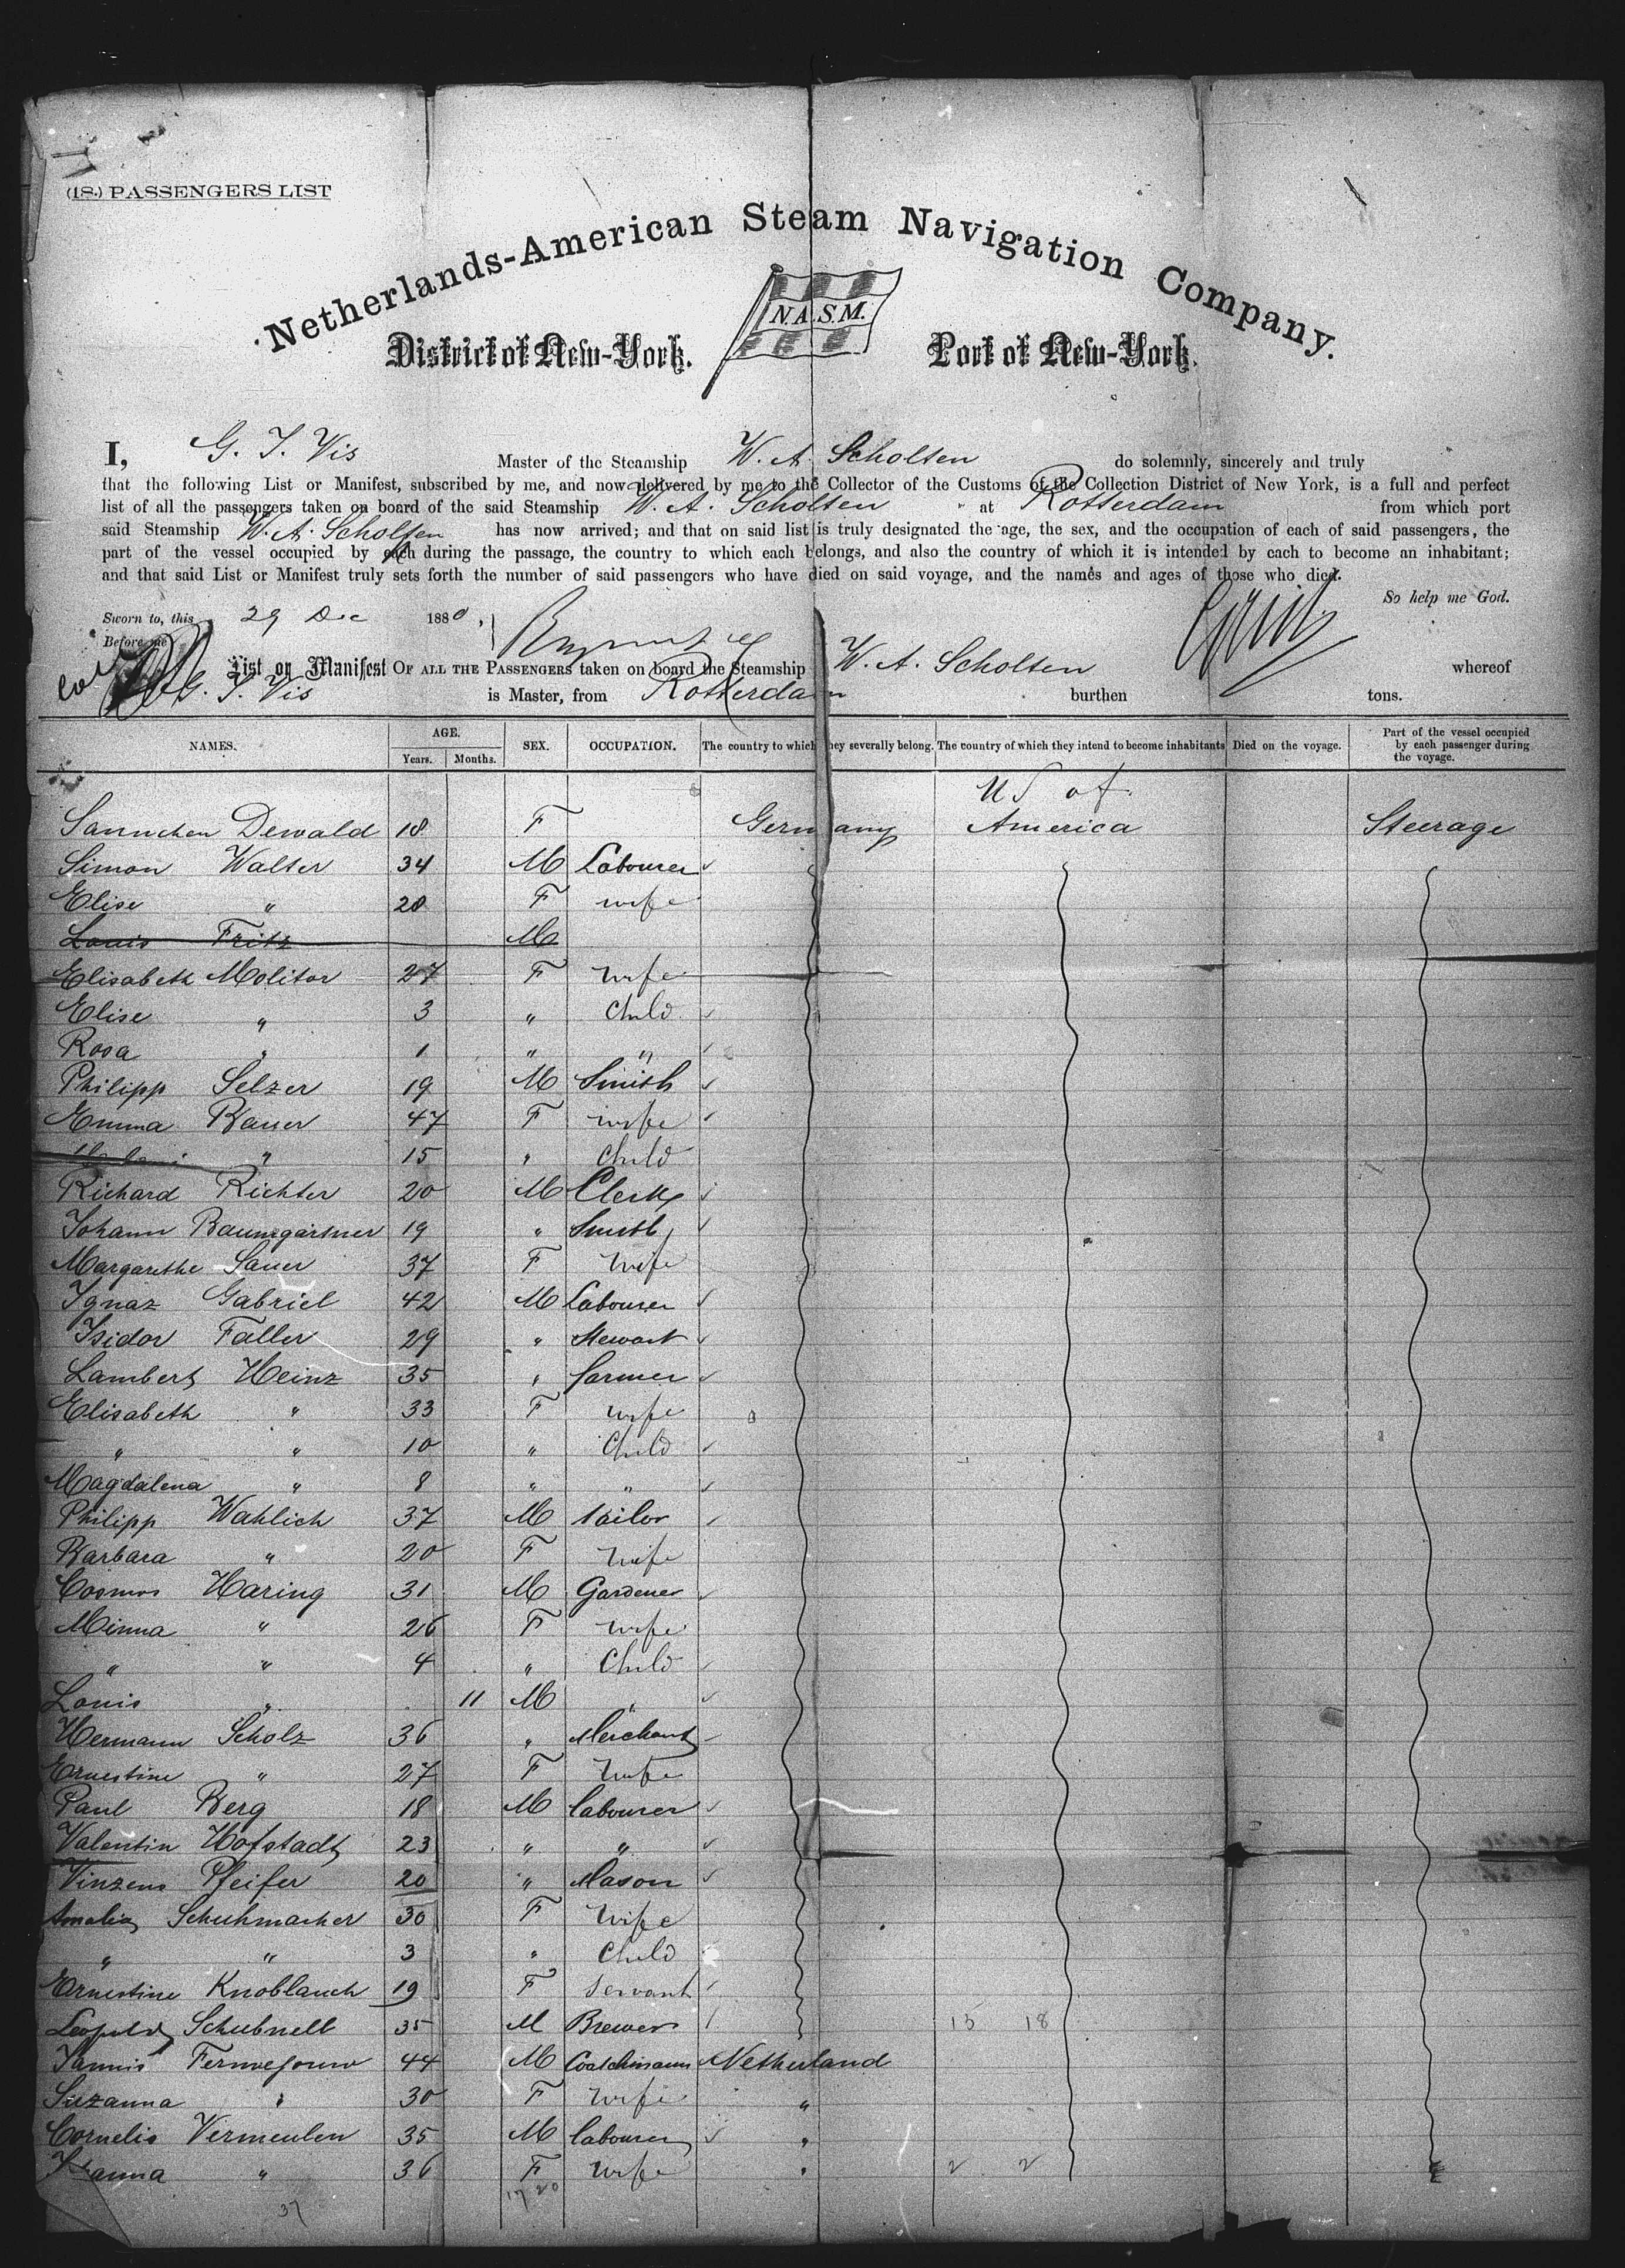 (18.) PASSENGERS LIST
Netherlands-American Steam Navigation Company.
N.A.S.M.
District of New-York. Port of New-York.
I, G. J. Vis Master of the Steamship W. A. Scholten do solemnly, sincerely and truly
that the following List or Manifest, subscribed by me, and now delivered by me to the Collector of the Customs of the Collection District of New York, is a full and perfect
list of all the passengers taken on board of the said Steamship W. A. Scholten at Rotterdam from which port
said Steamship W. A. Scholten has now arrived; and that on said list is truly designated the age, the sex, and the occupation of each of said passengers, the
part of the vessel occupied by each during the passage, the country to which each belongs, and also the country of which it is intended by each to become an inhabitant;
and that said List or Manifest truly sets forth the number of said passengers who have died on said voyage, and the names and ages of those who died.
So help me God.
Sworn to, this 29 Dec 1880,
Before me
List or Manifest OF ALL THE PASSENGERS taken on board the Steamship W. A. Scholten whereof
G. J. Vis is Master, from Rotterdam burthen tons.
NAMES. AGE. Years. Months. SEX. OCCUPATION. The country to which they severally belong. The country of which they intend to become inhabitants Died on the voyage. Part of the vessel occupied by each passenger during the voyage.
US of
Sannchen Dewald 18 F Germany America Steerage
Simon Walter 34 M Labourer
Elise " 28 F wife
Louis Fritz M
Elisabeth Molitor 27 F wife
Elise " 3 " Child
Rosa " 1 " "
Philipp Selzer 19 M Smith
Emma Bauer 47 F wife
" 15 " Child
Richard Richter 20 M Clerk
Johann Baumgärtner 19 " Smith
Margarethe Sauer 37 F wife
Ignaz Gabriel 42 M Labourer
Isidor Faller 29 " Stewart
Lambert Heinz 35 " farmer
Elisabeth " 33 F wife
" " 10 " Child
Magdalena " 8 " "
Philipp Wahlich 37 M Tailor
Barbara " 20 F wife
Cosmos Haring 31 M Gardener
Minna " 26 F wife
" " 4 " Child
Louis " 11 M "
Hermann Scholz 36 " Merchant
Ernestine " 27 F wife
Paul Berg 18 M labourer
Valentin Hofstadt 23 " "
Vinzens Pfeifer 20 " Mason
Amalia Schuhmacher 30 F Wife
" " 3 " Child
Ernestine Knoblauch 19 F Servant
Leopold Schubnell 35 M Brewer 15 18
Jannis 44 M Coatchmann Netherland
Suzanna " 30 F wife "
Cornelis Vermeulen 35 M labourer "
Janna " 36 F wife " 2 2
17 20
37